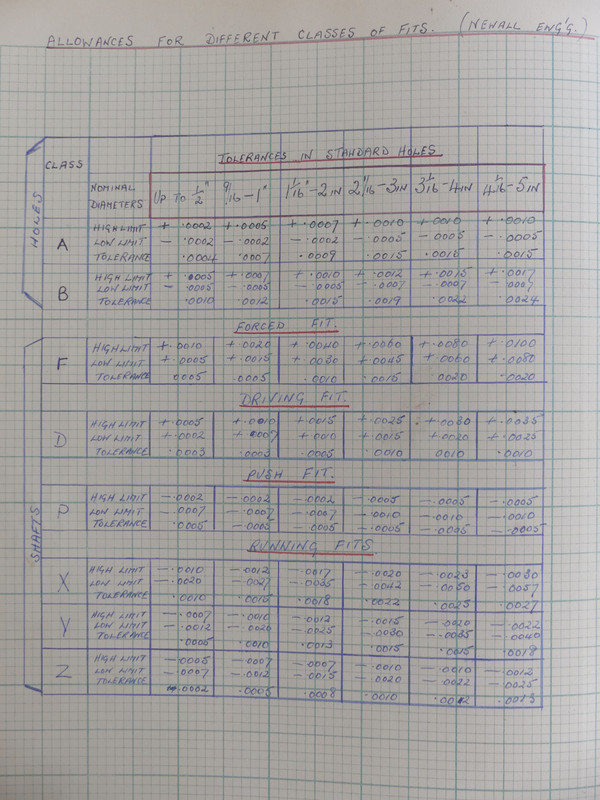 ALLOWANCES FOR DIFFERENT CLASSES OF FITS. (NEWALL ENG'G.)
HOLES
CLASS
TOLERANCES IN STANDARD HOLES
NOMINAL DIAMETERS UP TO 1/2" 9/16 - 1" 1 1/16" - 2 IN 2 1/16 - 3 IN 3 1/16 - 4 IN 4 1/16 - 5 IN
A
HIGH LIMIT + .0002 + .0005 + .0007 + .0010 + .0010 + .0010
LOW LIMIT - .0002 - .0002 - .0002 - .0005 - .0005 - .0005
TOLERANCE .0004 .0007 .0009 .0015 .0015 .0015
B
HIGH LIMIT + .0005 + .0007 + .0010 + .0012 + .0015 + .0017
LOW LIMIT - .0005 - .0005 - .0005 - .0007 - .0007 - .0007
TOLERANCE .0010 .0012 .0015 .0019 .0022 .0024
SHAFTS
FORCED FIT.
F
HIGH LIMIT +.0010 +.0020 +.0040 +.0060 +.0080 +.0100
LOW LIMIT +.0005 +.0015 +.0030 +.0045 +.0060 +.0080
TOLERANCE .0005 .0005 .0010 .0015 .0020 .0020
DRIVING FIT.
D
HIGH LIMIT +.0005 +.0010 +.0015 +.0025 +.0030 +.0035
LOW LIMIT +.0002 +.0007 +.0010 +.0015 +.0020 +.0025
TOLERANCE .0003 .0003 .0005 .0010 .0010 .0010
PUSH FIT.
P
HIGH LIMIT -.0002 -.0002 -.0002 -.0005 -.0005 -.0005
LOW LIMIT -.0007 -.0007 -.0007 -.0010 -.0010 -.0010
TOLERANCE .0005 -.0005 -.0005 -.0005 -.0005 -.0005
RUNNING FITS
X
HIGH LIMIT -.0010 -.0012 -.0017 -.0020 -.0023 -.0030
LOW LIMIT -.0020 -.0027 -.0035 -.0042 -.0050 -.0057
TOLERANCE .0010 .0015 .0018 .0022 .0025 .0027
Y
HIGH LIMIT -.0007 -.0010 -.0012 -.0015 -.0020 -.0022
LOW LIMIT -.0012 -.0020 -.0025 -.0030 -.0035 -.0040
TOLERANCE .0005 .0010 .0013 .0015 .0015 .0018
Z
HIGH LIMIT -.0005 -.0007 -.0007 -.0010 -.0010 -.0012
LOW LIMIT -.0007 -.0012 -.0015 -.0020 -.0022 -.0025
TOLERANCE .0002 .0005 .0008 .0010 .0012 .0013